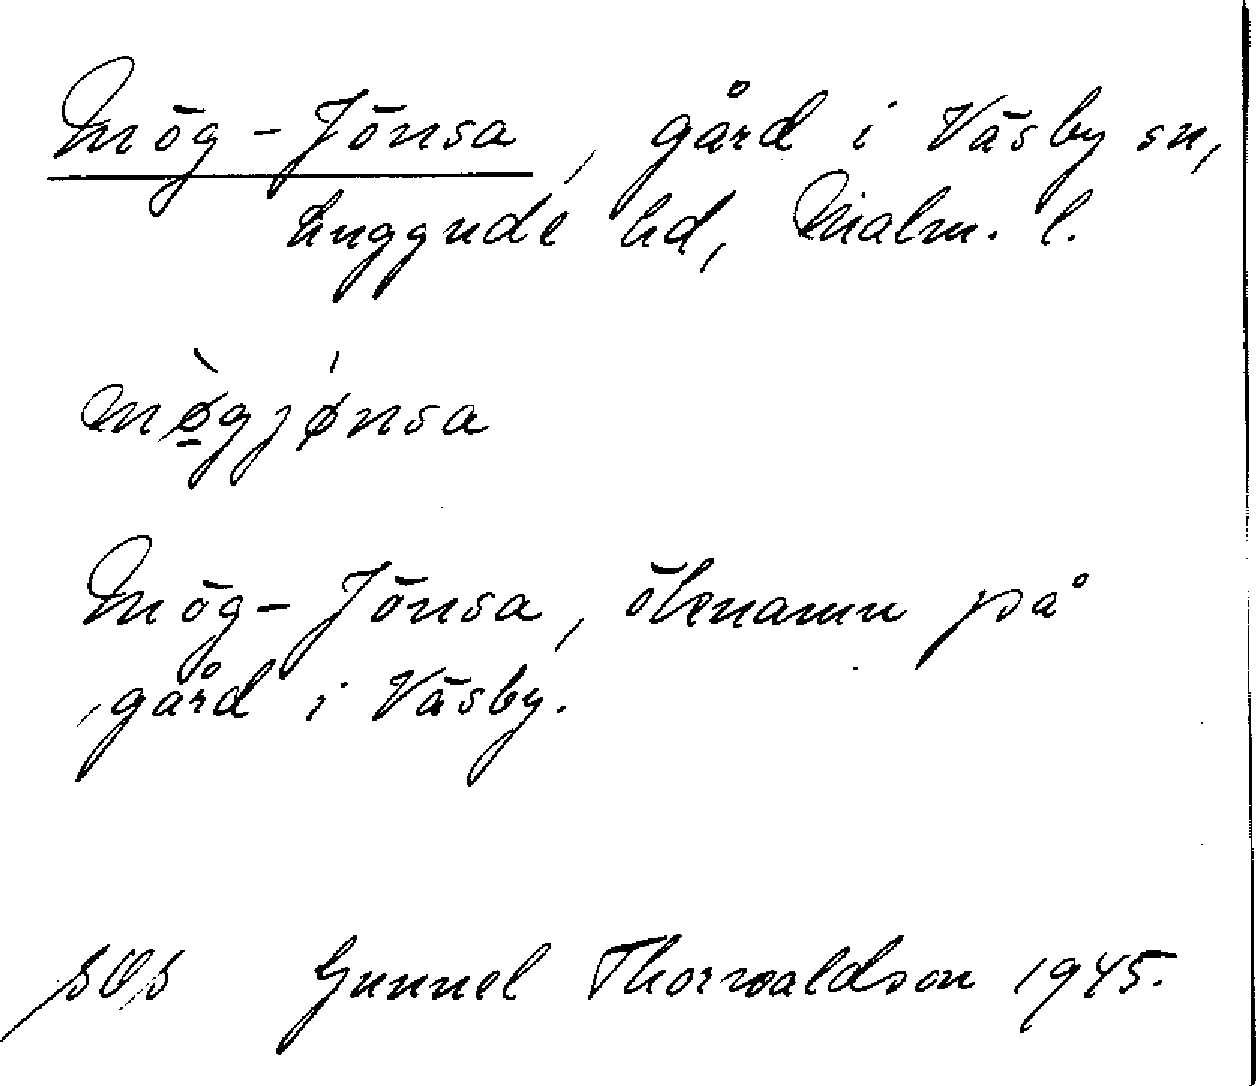 Mög-Jönsa, gård i Väsby sn,
Luggude hd, Malm. l.
mø̲̀gjǿnsa
Mög-Jönsa, öknamn på
gård i Väsby.
Gunnel Thorwaldson 1945.